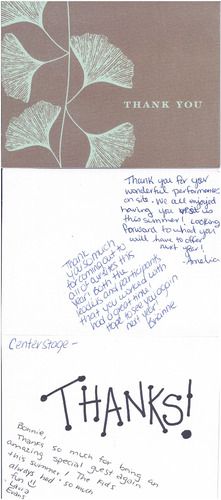 THANK YOU
Thank you for your
wonderful performances
on site. We all enjoyed
having you visit us
this summer! Looking
forward to what you
will have to offer
next year!
- Amelia
Thank
you so much
for coming out to
all our sites this
year. Both the
leaders and participants
that you worked with
had a great time.
Hope to see you again
next year.
Brianne
Centerstage -
THANKS!
Bonnie,
Thanks so much for being an
amazing special guest again
this summer! The kids
always had so much
fun